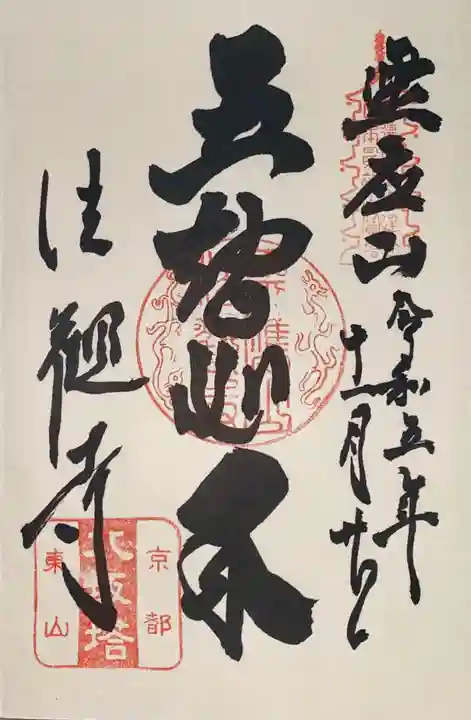 霊応山
令和五年
十一月廿日
五智如来
法観寺
京都
八坂塔
東山